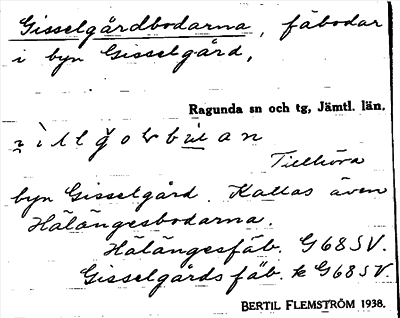 Gisselgårdbodarna, fäbodar
i byn Gisselgård,
Ragunda sn och tg, Jämtl. län.
Tillhöra
byn Gisselgård. Kallas även
Hälängesbodarna.
Hälängesfäb. G 68 SV.
Gisselgårds fäb. k G 68 SV.
BERTIL FLEMSTRÖM 1938.